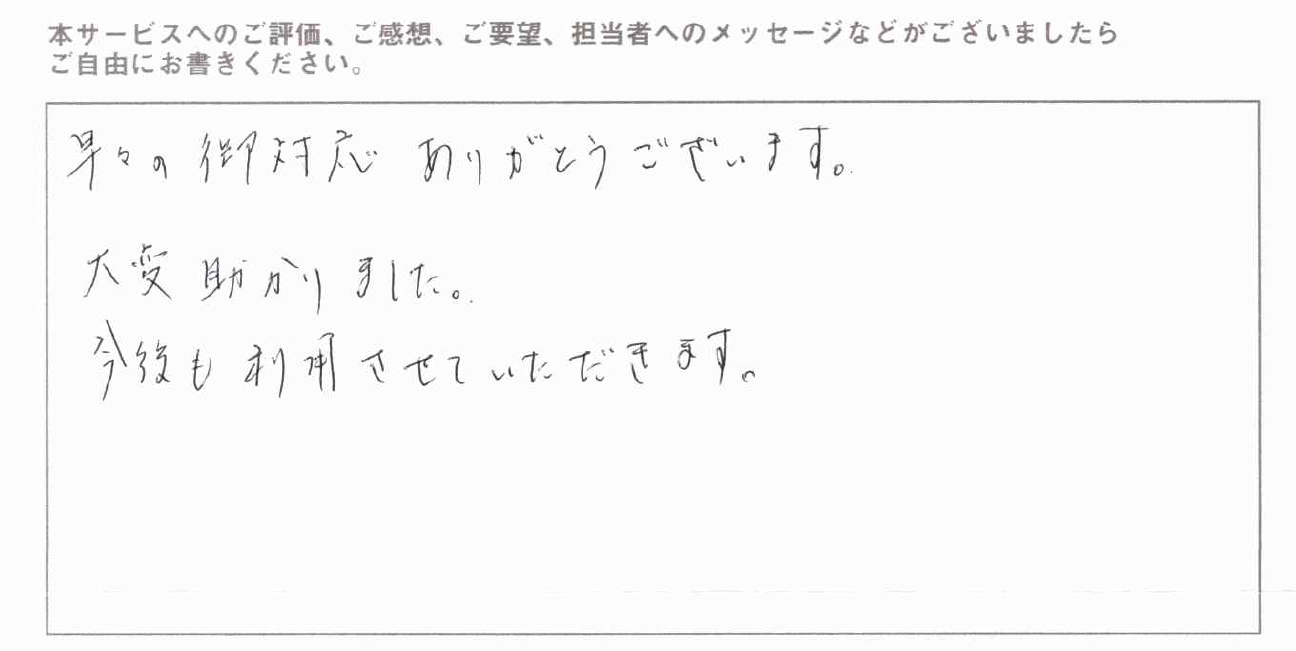 本サービスへのご評価、ご感想、ご要望、担当者へのメッセージなどがございましたら
ご自由にお書きください。
早々の御対応 ありがとうございます。
大変助かりました。
今後も利用させていただきます。